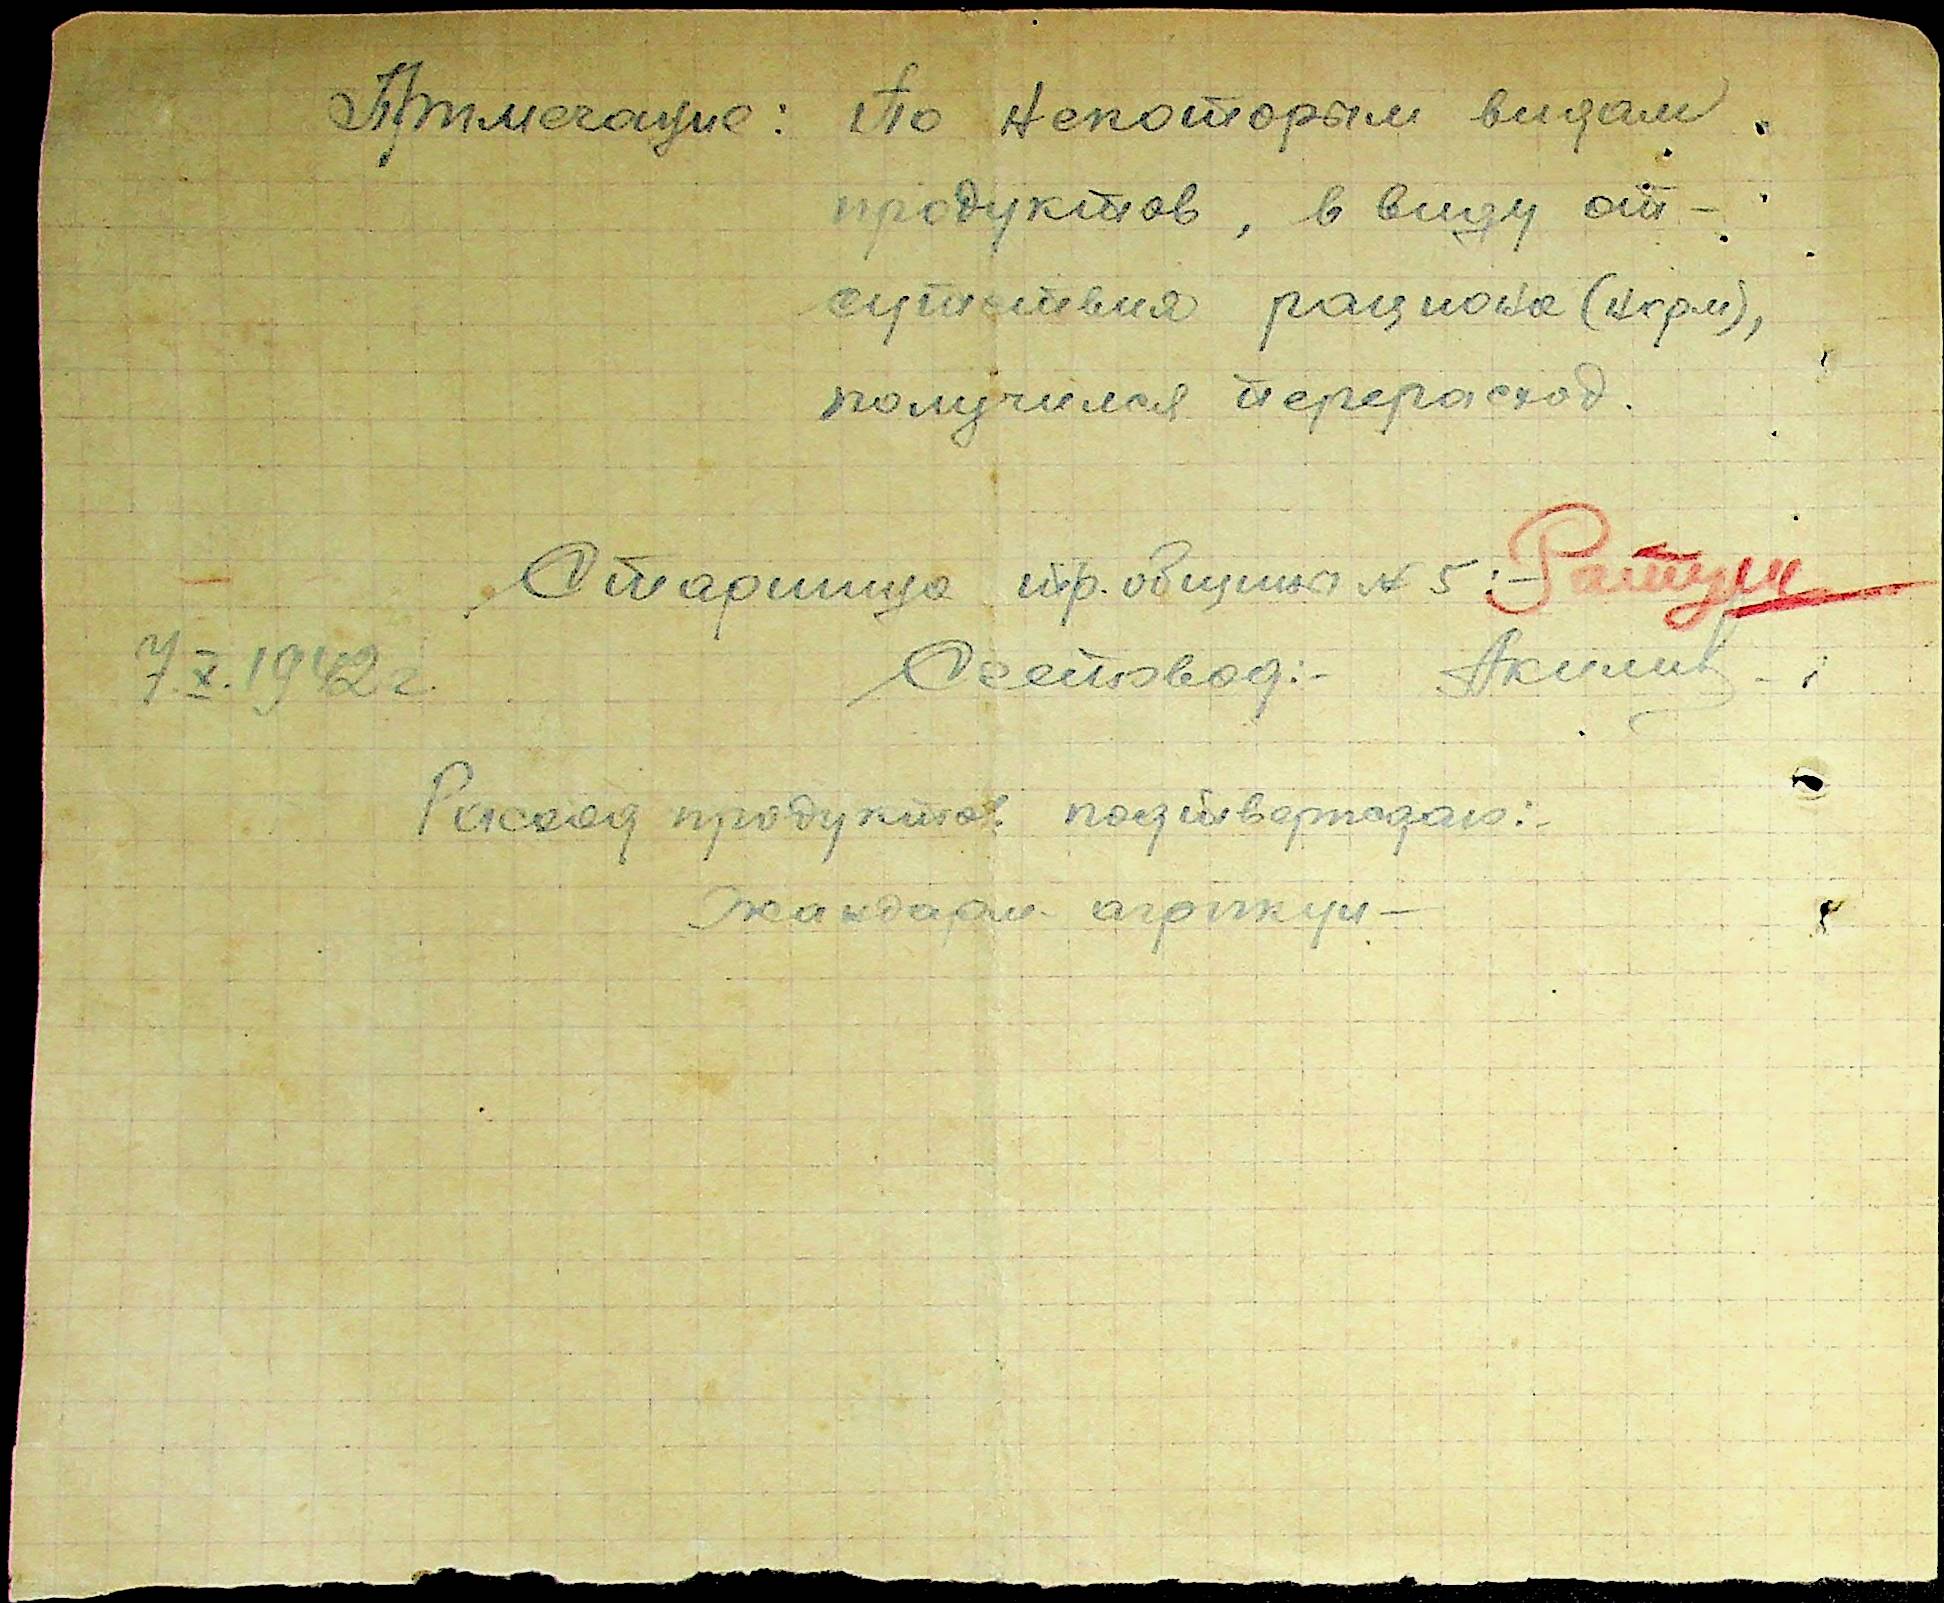 Примечание: По некоторым видам
продуктов, в виду от-
сутствия рациона (норм),
получился перерасход.
Старшина тр. общины № 5:-
7.X.1942 г. Счетовод:-
Расход продуктов подтверждаю:-
Жандарм агрикул-